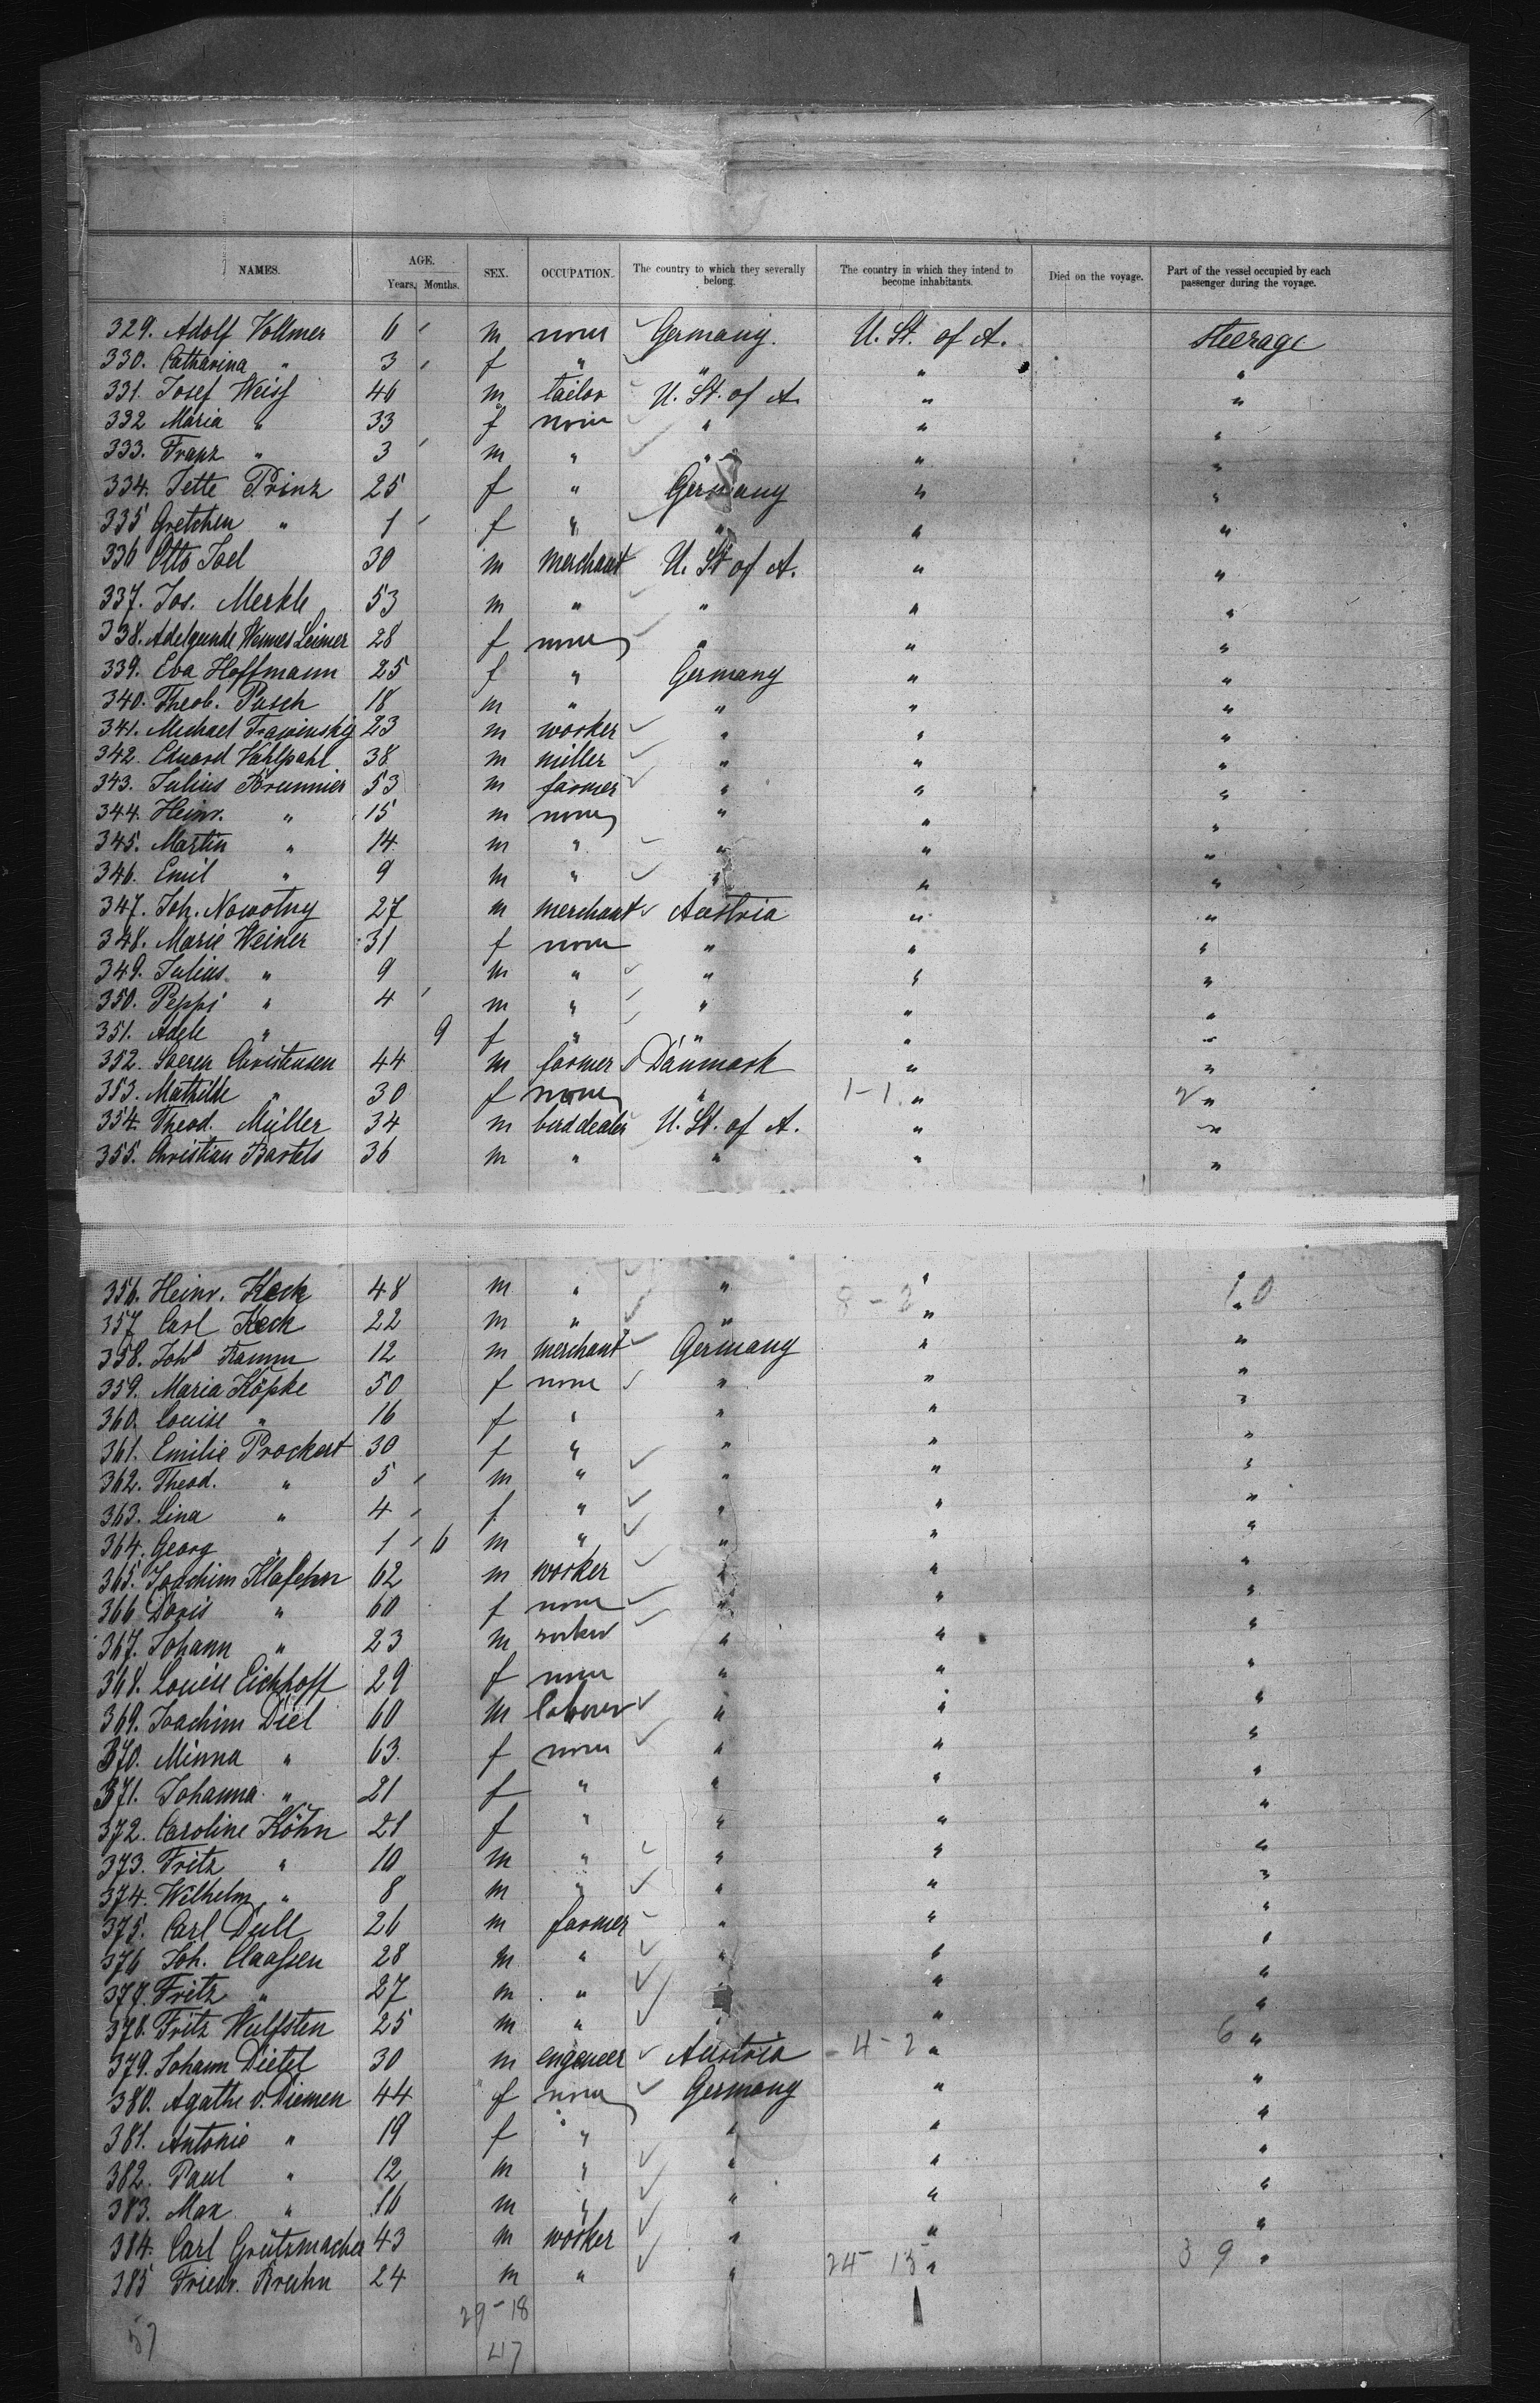 NAMES. AGE. Years. Months. SEX. OCCUPATION. The country to which they severally belong. The country in which they intend to become inhabitants. Died on the voyage. Part of the vessel occupied by each passenger during the voyage.
329. Adolf Vollmer 6 m none Germany. U. St. of A. steerage
330. Catharina " 3 f " " " "
331. Josef Weiss 46 m tailor U. St. of A. " "
332 Maria " 33 f none " " "
333. Franz " 3 m " " " "
334. Jette Prinz 25 f " Germany " "
335 Gretchen " 1 f " " " "
336 Otto Joel 30 m merchant U. St of A. " "
337. Jos. Merkle 53 m " " " "
338. Adelgunde 28 f none " " "
339. Eva Hoffmann 25 f " Germany " "
340. Theob. Pusch 18 m " " " "
341. Michael 23 m worker " " "
342. Eduard Vahlpahl 38 m miller " " "
343. Julius Brunnier 53 m farmer " " "
344. Heinr. " 15 m none " " "
345. Martin " 14 m " " " "
346. Emil " 9 m " " " "
347. Joh. Nowotny 27 m merchant Austria " "
348. Marie Weiner 31 f none " " "
349. Julius " 9 m " " " "
350. Peppi " 4 m " " " "
351. Adele " 9 f " " " "
352. Soeren Christensen 44 m farmer Dänmark " "
353. Mathilde " 30 f none " 1-1. " 2 "
354. Theod. Müller 34 m birddealer U. St. of A. " "
355. Christian Bartels 36 m " " " "
356. Heinr. Keck 48 m " " " "
357 Carl Keck 22 m " " 8-2 " 10 "
358. Johs Ramm 12 m merchant Germany " "
359. Maria Köpke 50 f none " " "
360. Louise " 16 f " " " "
361. Emilie Prockert 30 f " " " "
362. Theod. " 5 m " " " "
363. Lina " 4 f " " " "
364. Georg " 1 6 m " " " "
365. Joachim 62 m worker " " "
366 Doris " 60 f none " " "
367. Johann " 23 m worker " " "
368. Louise Eichhoff 29 f none " " "
369. Joachim Diel 60 m laborer " " "
370. Minna " 63. f none " " "
371. Johanna " 21 f " " " "
372. Caroline Köhn 21 f " " " "
373. Fritz " 10 m " " " "
374. Wilhelm " 8 m " " " "
375. Carl Dull 26 m farmer " " "
376 Joh. Claassen 28 m " " " "
377. Fritz " 27 m " " " "
378. Fritz Wulfsten 25 m " " " "
379. Johann Dietel 30 m engeneer Austria 4-2 " 6 "
380. Agathe v. Diemen 44 f none Germany " "
381. Antonie " 19 f " " " "
382. Paul " 12 m " " " "
383. Max " 16 m " " " "
384. Carl Grützmacher 43 m worker " " "
385 Friedr. Bruhn 24 m " " 24 15 " 39 "
29-18
57 47